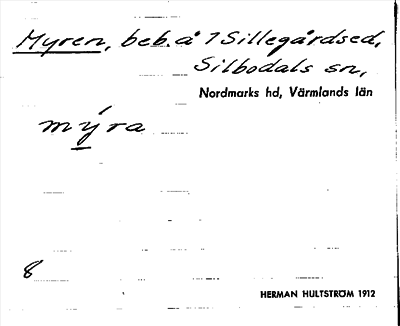 Myren, beb. å 7 Sillegårdsed,
Silbodals sn,
Nordmarks hd, Värmlands län
mýra
8
HERMAN HULTSTRÖM 1912